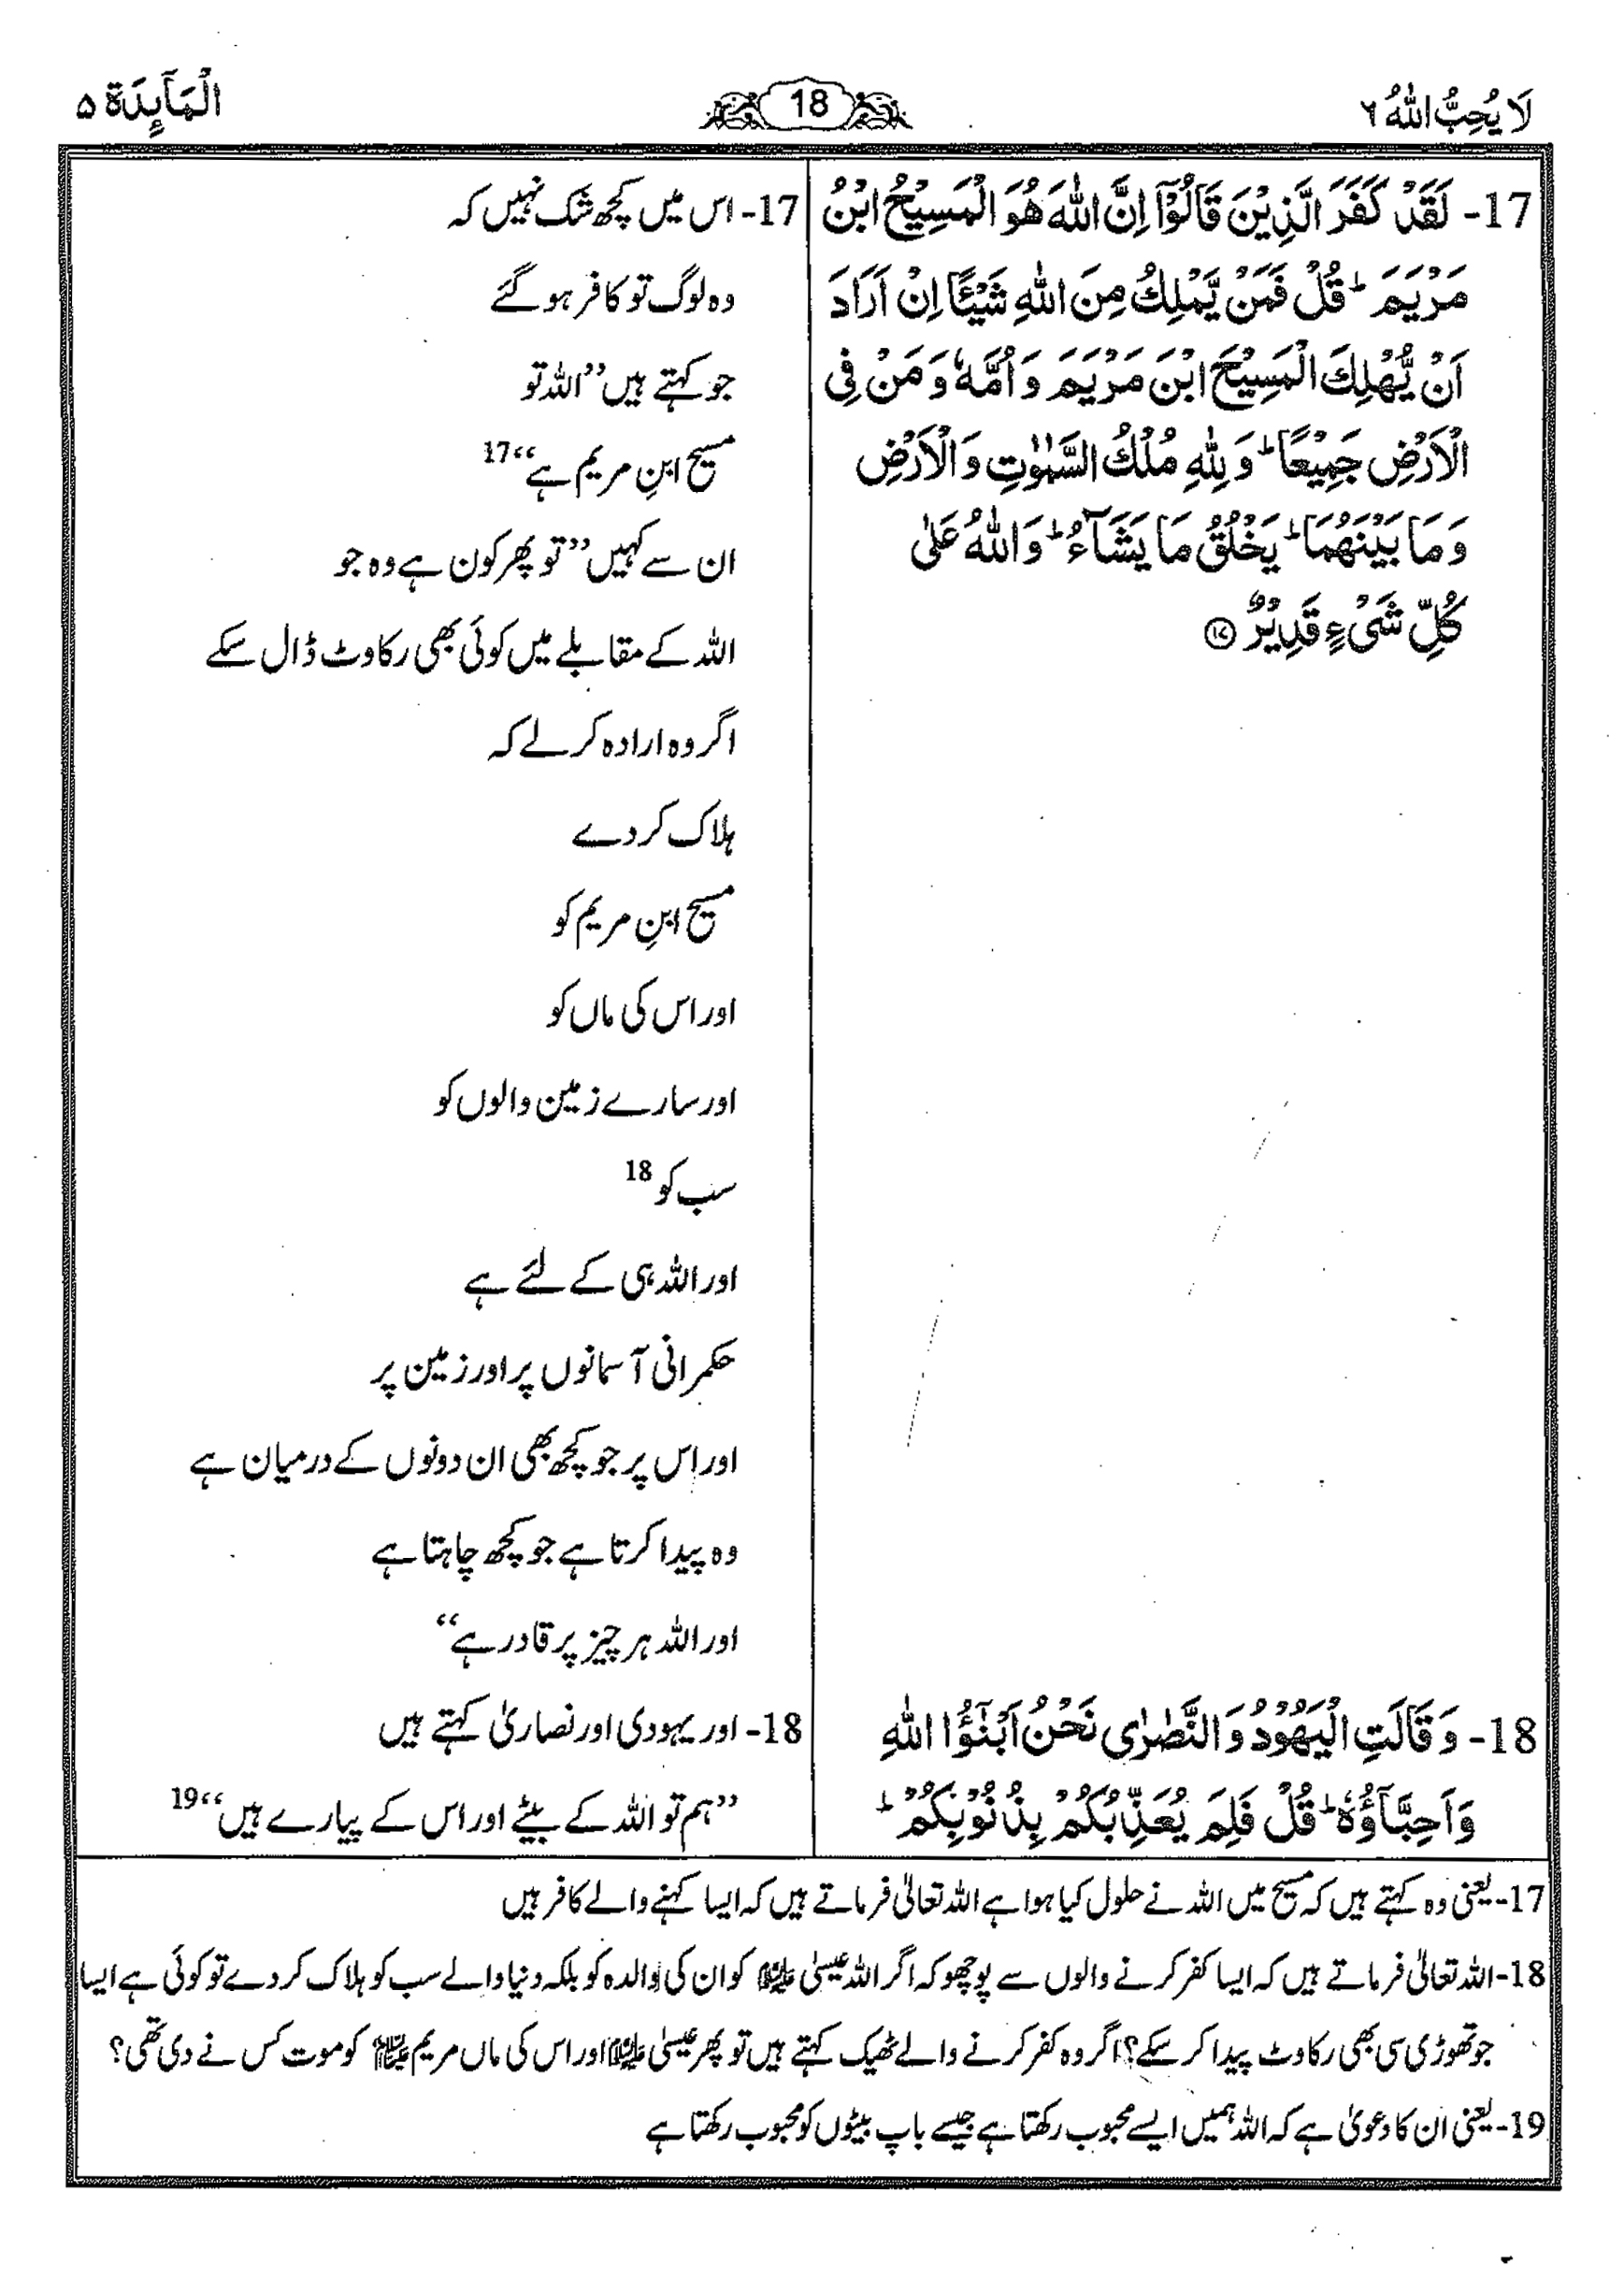 لَا يُحِبُّ اللهُ ٦
18
الْمَآئِدَة ۵
17- لَقَدْ كَفَرَ الَّذِيْنَ قَالُوْٓا اِنَّ اللهَ هُوَ الْمَسِيْحُ ابْنُ
مَرْيَمَ ؕ قُلْ فَمَنْ يَّمْلِكُ مِنَ اللهِ شَيْـًٔا اِنْ اَرَادَ
اَنْ يُّهْلِكَ الْمَسِيْحَ ابْنَ مَرْيَمَ وَ اُمَّهٗ وَ مَنْ فِى
الْاَرْضِ جَمِيْعًا ؕ وَ لِلهِ مُلْكُ السَّمٰوٰتِ وَ الْاَرْضِ
وَ مَا بَيْنَهُمَا ؕ يَخْلُقُ مَا يَشَآءُ ؕ وَ اللهُ عَلٰى
كُلِّ شَىْءٍ قَدِيْرٌ ۝۱۷
17- اس میں کچھ شک نہیں کہ
وہ لوگ تو کافر ہو گئے
جو کہتے ہیں ’’اللہ تو
مسیح ابنِ مریم ہے‘‘17
ان سے کہیں ’’تو پھر کون ہے وہ جو
اللہ کے مقابلے میں کوئی بھی رکاوٹ ڈال سکے
اگر وہ ارادہ کر لے کہ
ہلاک کر دے
مسیح ابنِ مریم کو
اور اس کی ماں کو
اور سارے زمین والوں کو
سب کو 18
اور اللہ ہی کے لئے ہے
حکمرانی آسمانوں پر اور زمین پر
اور اس پر جو کچھ بھی ان دونوں کے درمیان ہے
وہ پیدا کرتا ہے جو کچھ چاہتا ہے
اور اللہ ہر چیز پر قادر ہے‘‘
18- وَ قَالَتِ الْيَهُوْدُ وَ النَّصٰرٰى نَحْنُ اَبْنٰٓؤُا اللهِ
وَ اَحِبَّآؤُهٗ ؕ قُلْ فَلِمَ يُعَذِّبُكُمْ بِذُنُوْبِكُمْ ؕ
18- اور یہودی اور نصاریٰ کہتے ہیں
’’ہم تو اللہ کے بیٹے اور اس کے پیارے ہیں‘‘19
17- یعنی وہ کہتے ہیں کہ مسیح میں اللہ نے حلول کیا ہوا ہے اللہ تعالیٰ فرماتے ہیں کہ ایسا کہنے والے کافر ہیں
18- اللہ تعالیٰ فرماتے ہیں کہ ایسا کفر کرنے والوں سے پوچھو کہ اگر اللہ عیسیٰ علیہ السلام کو ان کی والدہ کو بلکہ دنیا والے سب کو ہلاک کر دے تو کوئی ہے ایسا
جو تھوڑی سی بھی رکاوٹ پیدا کر سکے؟ اگر وہ کفر کرنے والے ٹھیک کہتے ہیں تو پھر عیسیٰ علیہ السلام اور اس کی ماں مریم علیہا السلام کو موت کس نے دی تھی؟
19- یعنی ان کا دعویٰ ہے کہ اللہ ہمیں ایسے محبوب رکھتا ہے جیسے باپ بیٹوں کو محبوب رکھتا ہے